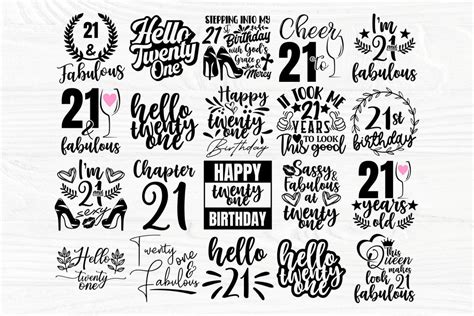 21
&
Fabulous
Hello
Twenty
One
STEPPING INTO MY
21st
Birthday
with God's
Grace &
Mercy
Cheers
to
21
I'm
21 and
fabulous
21
&
fabulous
hello
twenty
one
Happy
twenty
one
Birthday
IT TOOK ME
21
YEARS
TO LOOK
This good
21st
birthday
I'm
21 and
sexy
Chapter
21
HAPPY
twenty
one
BIRTHDAY
Sassy &
fabulous
at
twenty
one
21
years
old
Hello
twenty one
Twenty
one &
Fabulous
hello
21
hello
twenty
one
This
Queen
makes
look 21
fabulous